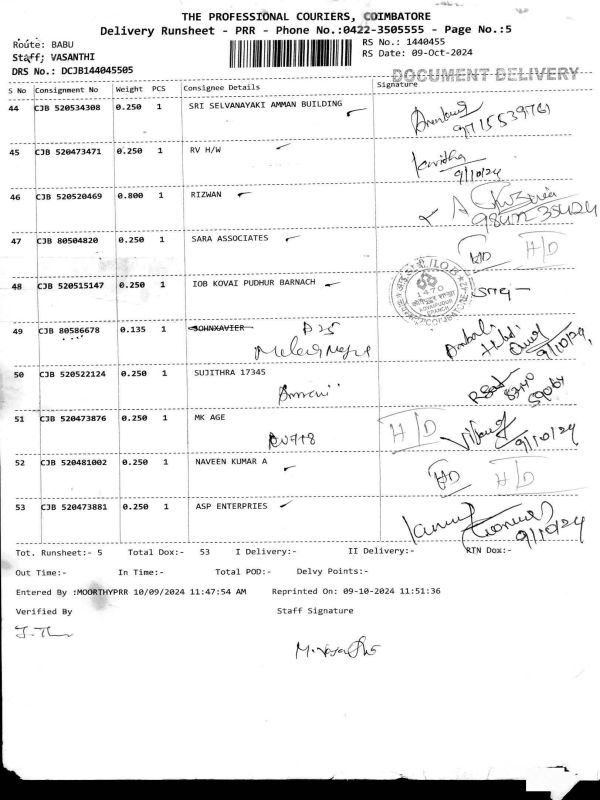 THE PROFESSIONAL COURIERS, COIMBATORE
Delivery Runsheet - PRR - Phone No.:0422-3505555 - Page No.:5
Route: BABU
RS No.: 1440455
Staff: VASANTHI
RS Date: 09-Oct-2024
DRS No.: DCJB144045505
DOCUMENT DELIVERY
S No Consignment No Weight PCS Consignee Details Signature
44 CJB 520534308 0.250 1 SRI SELVANAYAKI AMMAN BUILDING
9715539761
45 CJB 520473471 0.250 1 RV H/W
Kavitha
9/10/24
46 CJB 520520469 0.800 1 RIZWAN
47 CJB 80504820 0.250 1 SARA ASSOCIATES
HD H/D
48 CJB 520515147 0.250 1 IOB KOVAI PUDHUR BARNACH
1470
49 CJB 80586678 0.135 1 JOHNXAVIER
9/10/24
50 CJB 520522124 0.250 1 SUJITHRA 17345
51 CJB 520473876 0.250 1 MK AGE
H/D
9/10/24
52 CJB 520481002 0.250 1 NAVEEN KUMAR A
HD H/D
53 CJB 520473881 0.250 1 ASP ENTERPRIES
9/10/24
Tot. Runsheet:- 5 Total Dox:- 53 I Delivery:- II Delivery:- RTN Dox:-
Out Time:- In Time:- Total POD:- Delvy Points:-
Entered By :MOORTHYPRR 10/09/2024 11:47:54 AM Reprinted On: 09-10-2024 11:51:36
Verified By Staff Signature